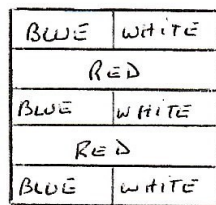 BLUE WHITE
RED
BLUE WHITE
RED
BLUE WHITE